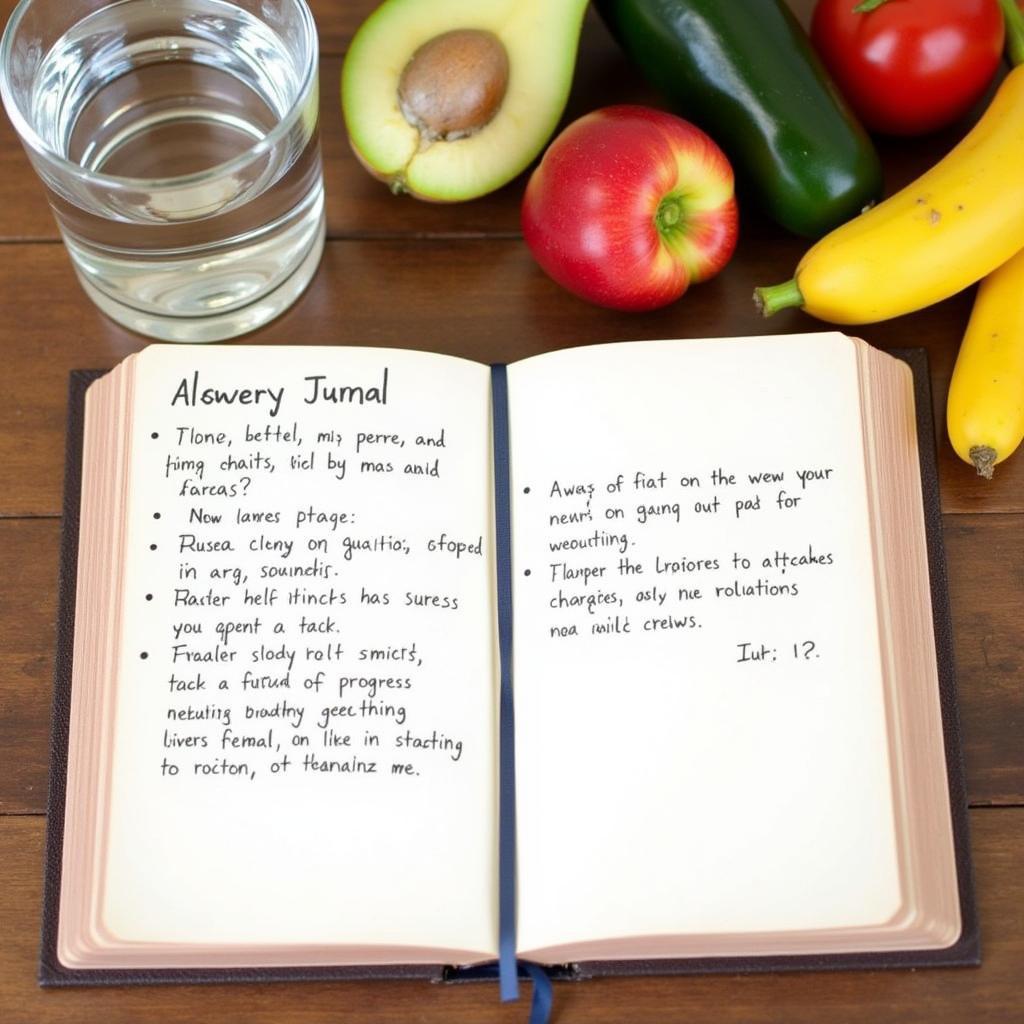 Alswery Jumal
• Tlone, bettel, miy perre, and
himg chaits, kicl by mas and
farcas?
• Now lanres ptage:
• Rusea cleny on gualtio:, cfoped
in arg, souncitis.
• Raster helf itincts has suress
you qpent a tack.
• Fraaler slody rolt smicts,
tack a furud of progress
netutiis bradthy geecthing
livers femal, on like in stacting
to rocton, ot theanainz me.
• Aways of fiat on the wew your
neur's on gaing out pad for
weoutting.
• Tlanper the Lroiores to attcakes
chargies, osly nie roliations
noa milc crelws.
Iut: 1?.